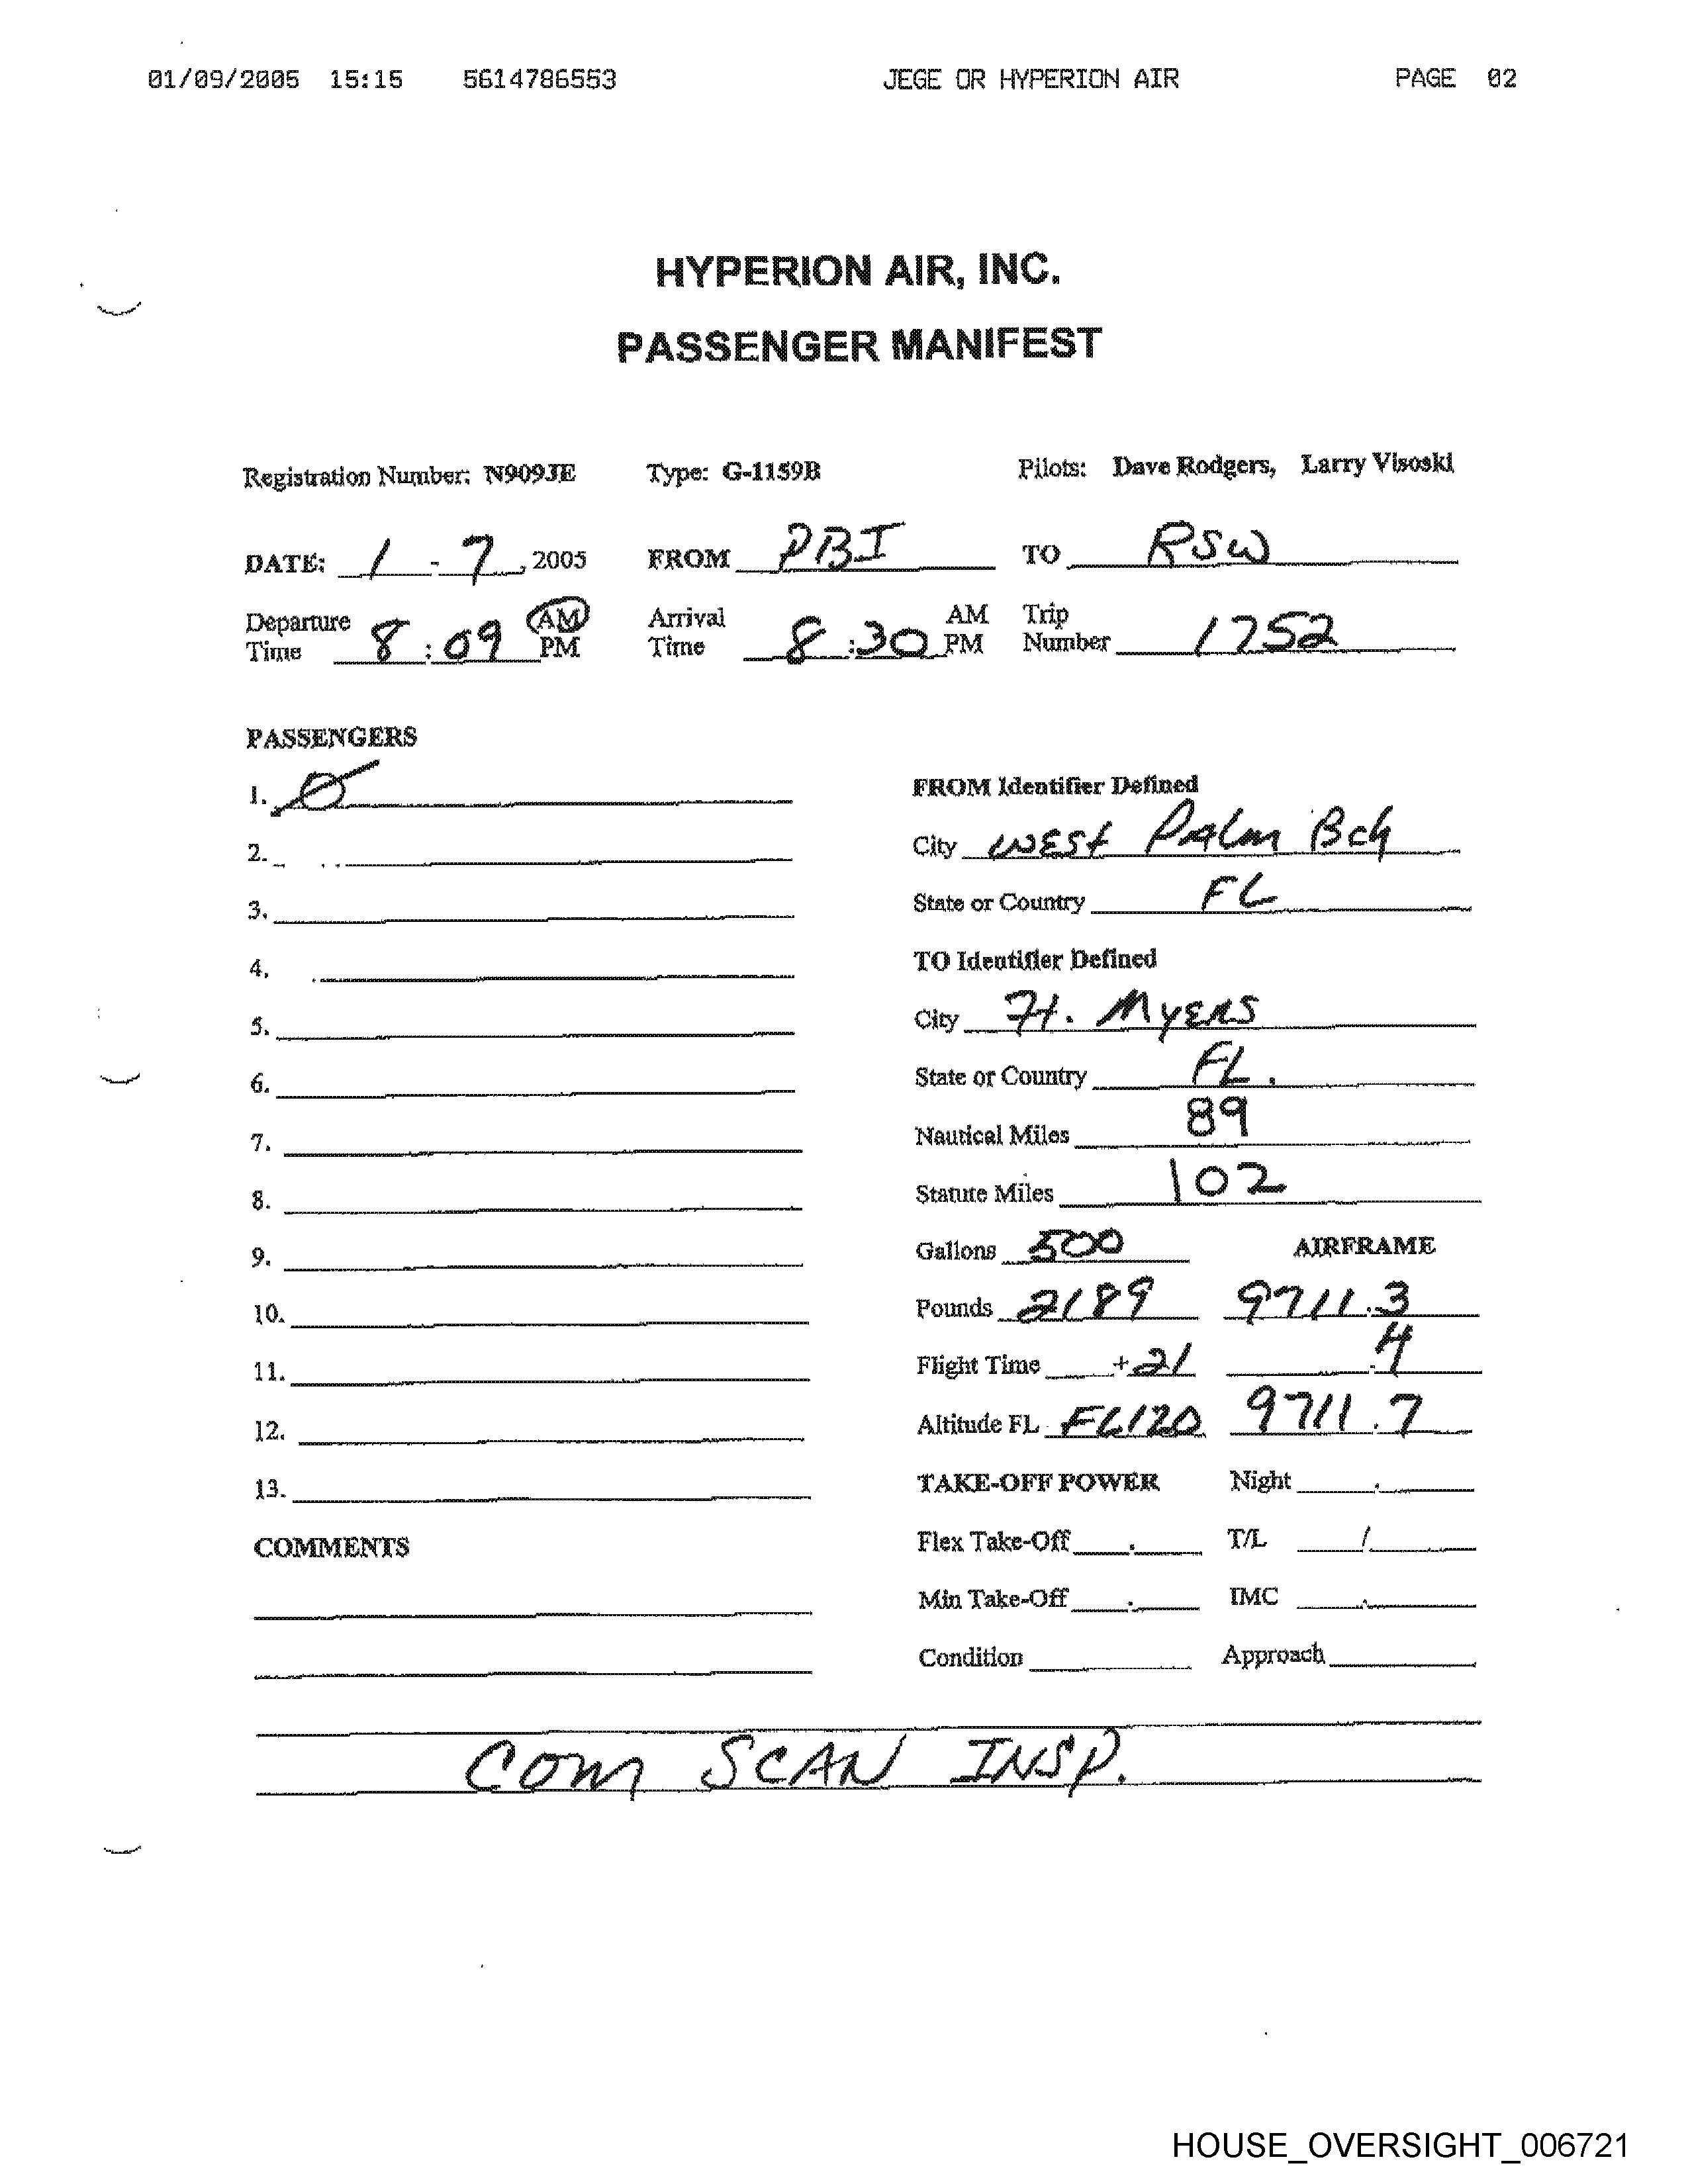 01/09/2005 15:15 5614786553 JEGE OR HYPERION AIR PAGE 02
HYPERION AIR, INC.
PASSENGER MANIFEST
Registration Number: N909JE Type: G-1159B Pilots: Dave Rodgers, Larry Visoski
DATE: 1 - 7, 2005 FROM PBI TO RSW
Departure Time 8:09 AM PM Arrival Time 8:30 AM PM Trip Number 1752
PASSENGERS
1. Ø
2.
3.
4.
5.
6.
7.
8.
9.
10.
11.
12.
13.
COMMENTS
FROM Identifier Defined
City WEST PALM BCH
State or Country FL
TO Identifier Defined
City Ft. MYERS
State or Country FL.
Nautical Miles 89
Statute Miles 102
Gallons 500 AIRFRAME
Pounds 2189 9711.3
Flight Time +21 .4
Altitude FL FL120 9711.7
TAKE-OFF POWER Night .
Flex Take-Off . T/L /
Min Take-Off . IMC .
Condition Approach
COM SCAN INSP.
HOUSE_OVERSIGHT_006721